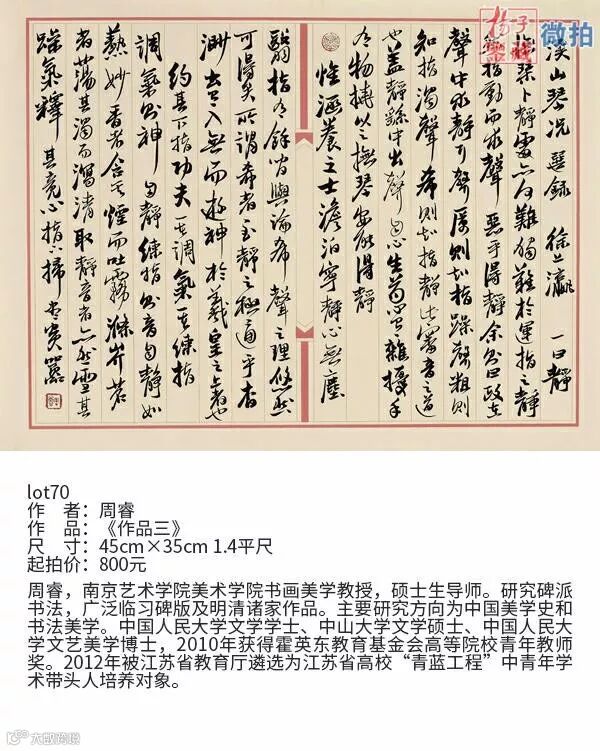 杨子
微拍
溪山琴況 選録 徐上瀛 一曰靜
撫琴卜靜處亦何難獨難於運指之靜
然指動而求聲惡乎得靜余則曰政在
聲中求靜耳聲厲則知指躁聲粗則
知指濁聲希則知指靜此審音之道
也蓋靜繇中出聲自心生苟心有雜擾手
有物撓以之撫琴安能得靜
惟涵養之士澹泊寧靜心無塵
翳指有餘閒與論希聲之理悠然
可得矣所謂希者至靜之極通乎杳
渺出有入無而遊神於羲皇之上者也
約其下指功夫一在調氣一在練指
調氣則神自靜練指則音自靜如
爇妙香者含其煙而吐霧滌岕茗
者蕩其濁而瀉清取靜音者亦然雪其
躁氣釋其競心指下掃盡炎囂
lot70
作　者：周睿
作　品：《作品三》
尺　寸：45cm×35cm 1.4平尺
起拍价：800元
周睿，南京艺术学院美术学院书画美学教授，硕士生导师。研究碑派
书法，广泛临习碑版及明清诸家作品。主要研究方向为中国美学史和
书法美学。中国人民大学文学学士、中山大学文学硕士、中国人民大
学文艺美学博士，2010年获得霍英东教育基金会高等院校青年教师
奖。2012年被江苏省教育厅遴选为江苏省高校“青蓝工程”中青年学
术带头人培养对象。
大数跨境